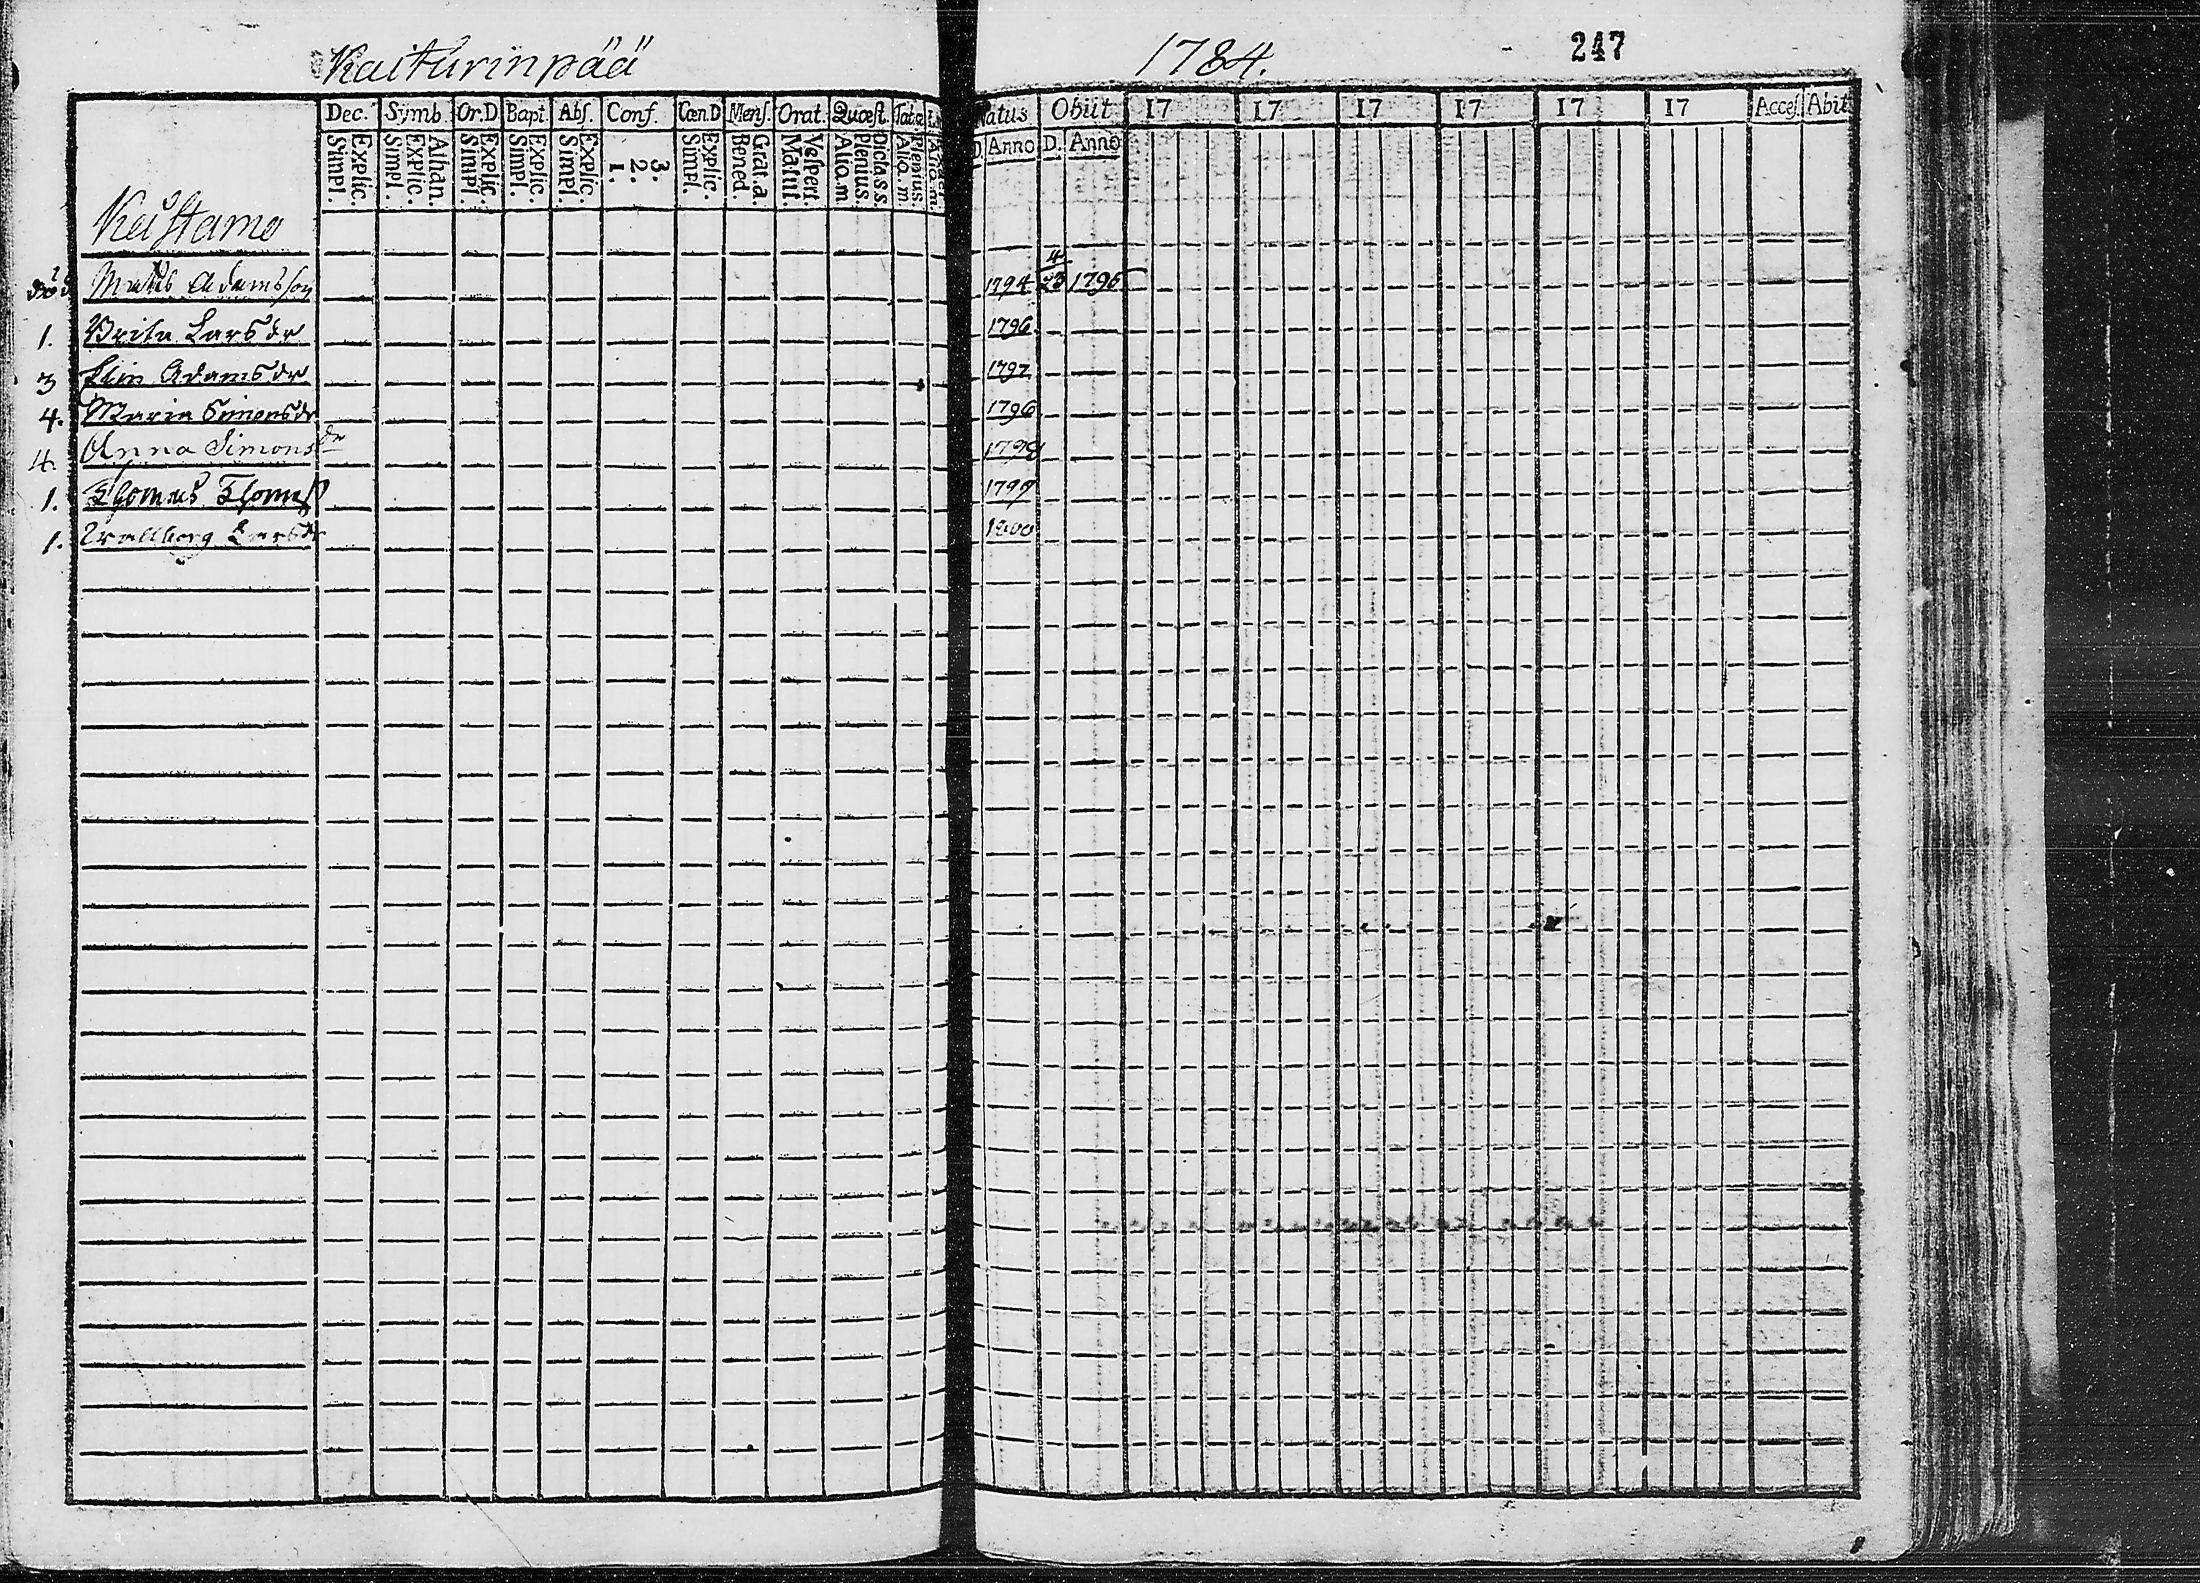 Kaiturinpää 1784. 247
Dec. Symb. Or.D Bapt. Abſ. Conf. Cœn.D Menſ. Orat. Quœſt. Natus Obiit 17 17 17 17 17 17 Acceſ. Abiit
Explic. Simpl. Athan. Explic. Simpl. Explic. Simpl. Explic. Simpl. Explic. Simpl. 3. 2. 1. Explic. Simpl. Grat. a. Bened. Veſpert. Matut. Dictas s. Plenius. Aliq. m. Plenius. Aliq. m. D Anno D. Anno
Kuſtama
död Matts Adamsſon 1794 4/23 1796
1. Brita Larsdr 1796
3 Elin Adamsdr 1797
4. Maria Simonsdr 1796
4. Anna Simonsdr 1798
1. Thomas Thomaſſ 1799
1. Wallborg Larsdr 1800